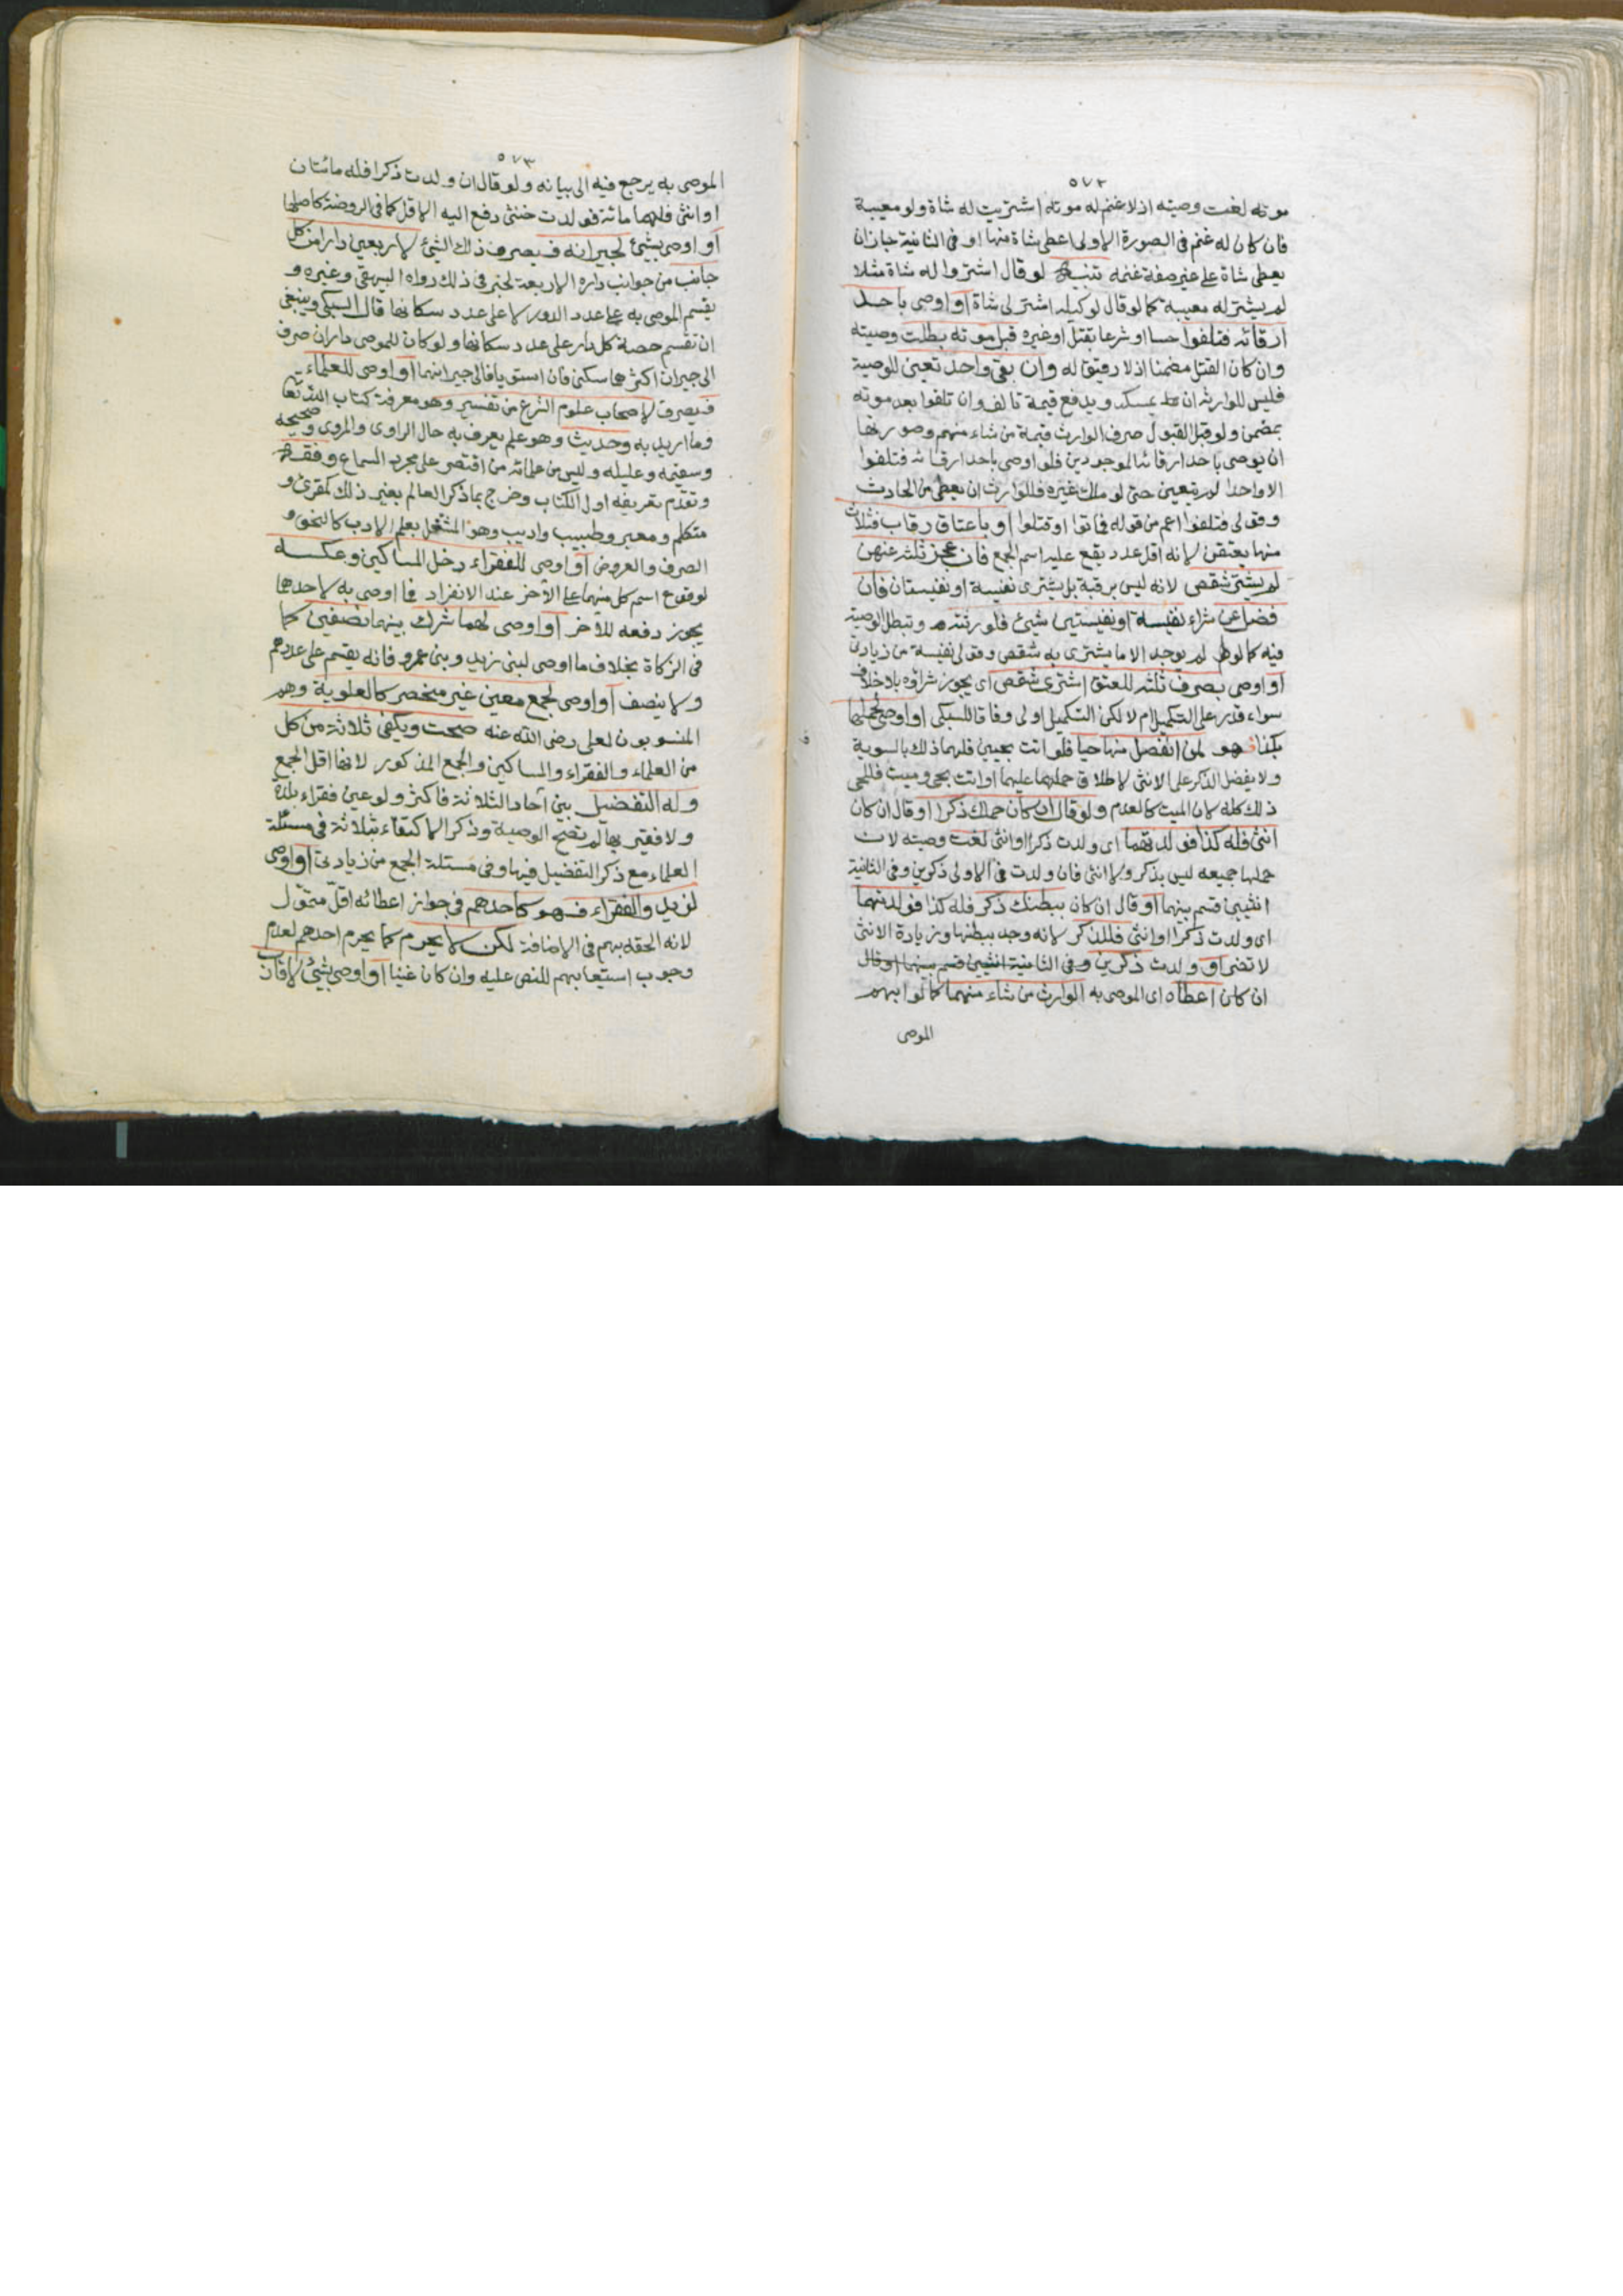 ٥٧٢
موته لغت وصيته اذ لا غنم له موته اشتريت له شاة ولو معيبة
فان كان له غنم فى الصورة الاولى اعطى شاة منها او فى الثانية جاز ان
يعطى شاة على غير صفة غنمه تنبيه لو قال اشتروا له شاة مثلا
لم يشتر له معيبة كما لو قال لوكيله اشتر لى شاة او اوصى باحد
ارقائه فتلفوا حسا او شرعا بقتل او غيره قبل موته بطلت وصيته
وان كان القتل مضمنا اذ لا رقيق له وان بقى واحد تعين للوصية
فليس للوارث ان يمسكه ويدفع قيمة تالف وان تلفوا بعد موته
بمضمن ولو قبل القبول صرف الوارث قيمة من شاء منهم وصورتها
ان يوصى باحد ارقائه الموجودين فلو اوصى باحد ارقائه فتلفوا
الا واحدا لم يتعين حتى لو ملك غيره فللوارث ان يعطى من الحادث
وقولى فتلفوا اعم من قوله فماتوا او قتلوا او باعتاق رقاب فثلاث
منها يعتقن لانه اقل عدد يقع عليه اسم الجمع فان عجز ثلثه عنهن
لم يشتر شقص لانه ليس برقبة بل يشترى نفيسة او نفيستان فان
فضل عن شراء نفيسة او نفيستين شيئ فلورثته وتبطل الوصية
فيه كما لو لم يوجد الا ما يشترى به شقص وقولى نفيسة من زيادتى
او اوصى بصرف ثلثه للعتق اشترى شقص اى يجوز شراؤه بلا خلاف
سواء قدر على التكميل ام لا لكن التكميل اولى وفاقا للسبكى او اوصى لحملها
بكذا فهو لمن انفصل منها حيا فلو اتت بحيين فلهما ذلك بالسوية
ولا يفضل الذكر على الانثى لاطلاق حملهما عليهما او اتت بحى وميت فللحى
ذلك كله لان الميت كالعدم ولو قال ان كان حملك ذكرا او قال ان كان
انثى فله كذا فولدتهما اى ولدت ذكرا وانثى لغت وصيته لان
حملها جميعه ليس بذكر ولا انثى فان ولدت فى الاولى ذكرين وفى الثانية
انثيين قسم بينهما او قال ان كان ببطنك ذكر فله كذا فولدتهما
اى ولدت ذكرا وانثى فللذكر لانه وجد ببطنها وزيادة الانثى
لا تضر او ولدت ذكرين وفى الثانية انثيين قسم بينهما او قال
ان كان اعطاه اى الموصى به الوارث من شاء منهما كما لو ابهم
الموصى
٥٧٣
الموصى به يرجع فيه الى بيانه ولو قال ان ولدت ذكرا فله مائتان
او انثى فلهما مائة فولدت خنثى دفع اليه الاقل كما فى الروضة كاصلها
او اوصى بشيئ لجيرانه فيصرف ذلك الشيئ لاربعين دارا من كل
جانب من جوانب داره الاربعة لخبر فى ذلك رواه البيهقى وغيره و
يقسم الموصى به على عدد الدور لا على عدد سكانها قال السبكى وينبغى
ان تقسم حصة كل دار على عدد سكانها ولو كان للموصى داران صرف
الى جيران اكثرهما سكنى فان استويا فالى جيرانهما او اوصى للعلماء
فيصرف لاصحاب علوم الشرع من تفسير وهو معرفة كتاب الله تعا
وما اريد به وحديث وهو علم يعرف به حال الراوى والمروى وصحيحه
وسقيمه وعليله وليس من علمائه من اقتصر على مجرد السماع وفقه
وتقدم تعريفه اول الكتاب وخرج بما ذكر العالم بغير ذلك كمقرئ و
متكلم ومعبر وطبيب واديب وهو المشتغل بعلم الادب كالنحو و
الصرف والعروض او اوصى للفقراء دخل المساكين وعكسه
لوقوع اسم كل منهما على الآخر عند الانفراد فما اوصى به لاحدهما
يجوز دفعه للآخر او اوصى لهما شرك بينهما نصفين كما
فى الزكاة بخلاف ما اوصى لبنى زيد وبنى عمرو فانه يقسم على عددهم
ولا ينصف او اوصى لجمع معين غير منحصر كالعلوية وهم
المنسوبون لعلى رضى الله عنه صحت ويكفى ثلاثة من كل
من العلماء والفقراء والمساكين والجمع المذكور لانها اقل الجمع
وله التفضيل بين آحاد الثلاثة فاكثر ولو عين فقراء بلدة
ولا فقير بها لم تصح الوصية وذكر الاكتفاء بثلاثة فى مسئلة
العلماء مع ذكر التفضيل فيها وفى مسئلة الجمع من زيادتى او اوصى
لزيد والفقراء فهو كاحدهم فى جواز اعطائه اقل متمول
لانه الحقه بهم فى الاضافة لكن لا يحرم كما يحرم احدهم لعدم
وجوب استيعابهم للنص عليه وان كان غنيا او اوصى بشيئ لاقارب